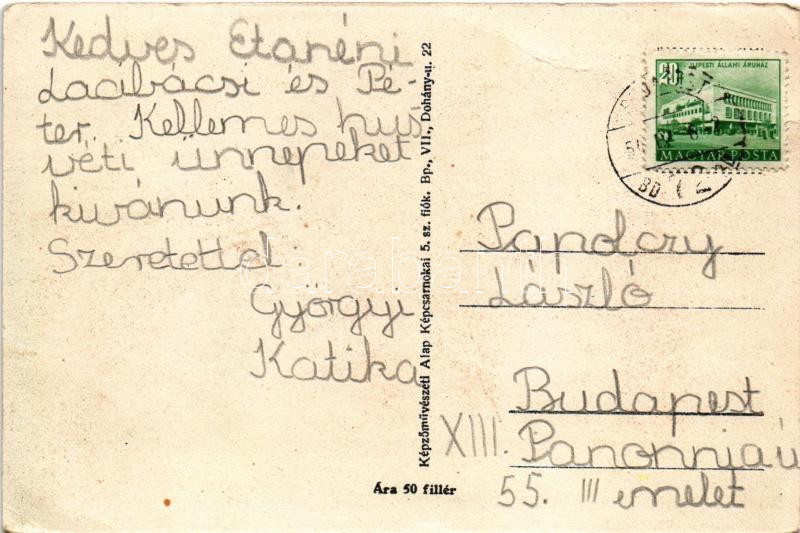 Kedves Etanéni
Lacibácsi és Pé-
ter. Kellemes hus
véti ünnepeket
kivánunk.
Szeretettel:
Györgyi
Katika
Képzőművészeti Alap Képcsarnokai 5. sz. fiók. Bp., VII., Dohány-u. 22
Ára 50 fillér
ÁLLAMI ÁRUHÁZ
MAGYAR POSTA
Papolczy
László
Budapest
XIII. Panonnia ú
55. III emelet